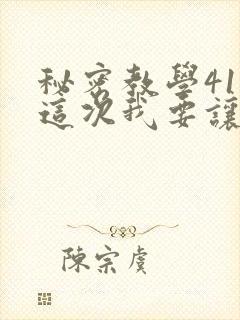 秘密教學41
這次我要讓
陳宗虞